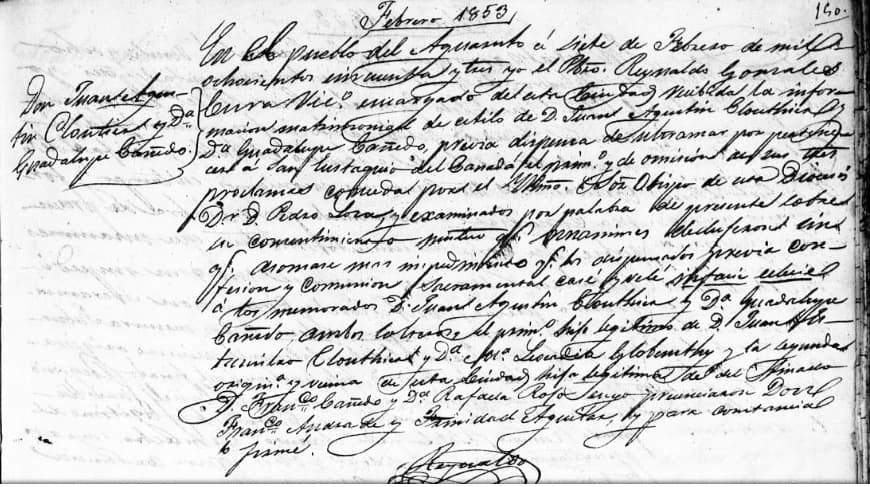 Febrero 1853
150.
Don Juan Agus-
tin Clouthier y Dª
Guadalupe Cañedo.
En el pueblo del Aguaruto á siete de Febrero de mil
ochocientos cincuenta y tres yo el Pbro. Reynaldo Gonzales
Cura Vicº. encargado del esta Ciudad recibida la infor
macion matrimonial de estilo de D. Juan Agustin Clouthier y
Dª Guadalupe Cañedo, previa dispensa de ultramar por pertenecer
á San Eustaquio del Canadá el primº. y de omision de sus tres
proclamas concedidas por el Yllmo. Sor Obispo de esta Diocesis
Dr. D. Pedro Loza y examinados por palabra de presente sobre
su consentimiento mutuo qe. unanimes sin
qe. asomase mas impedimento qe. los dispensados previa con-
fesion y comunion sacramental casé y velé in facie eclecie
á los memorados D. Juan Agustin Clouthier y Dª Guadalupe
Cañedo, ambos solteros el primº. hijo legitimo de D. Juan
Clouthier y Dª Leocadia y la segunda
originª. y vecina de esta Ciudad hija legitima del finado
D. Francº. Cañedo y Dª Rafaela Rojo presenciaron Don
Francº. y Trinidad Aguilar, y para constancia
lo firmé.
Reynaldo